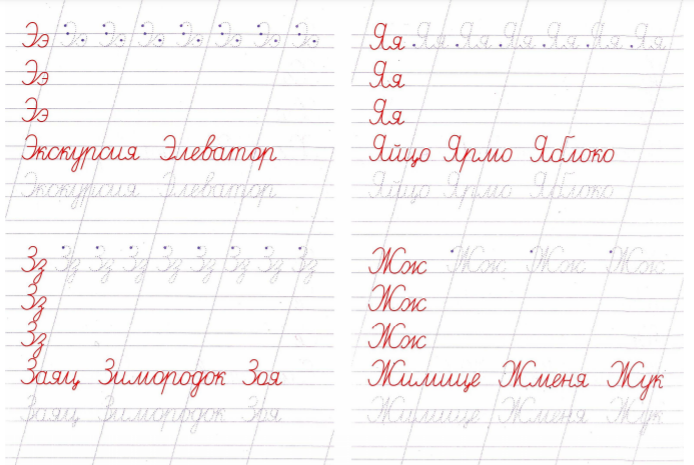 Ээ Ээ Ээ Ээ Ээ Ээ Ээ Ээ
Ээ
Ээ
Экскурсия Элеватор
Экскурсия Элеватор
Яя Яя Яя Яя Яя Яя Яя
Яя
Яя
Яйцо Ярмо Яблоко
Яйцо Ярмо Яблоко
Зз Зз Зз Зз Зз Зз Зз Зз Зз
Зз
Зз
Заяц Зимородок Зоя
Заяц Зимородок Зоя
Жж Жж Жж Жж
Жж
Жж
Жилище Жменя Жук
Жилище Жменя Жук